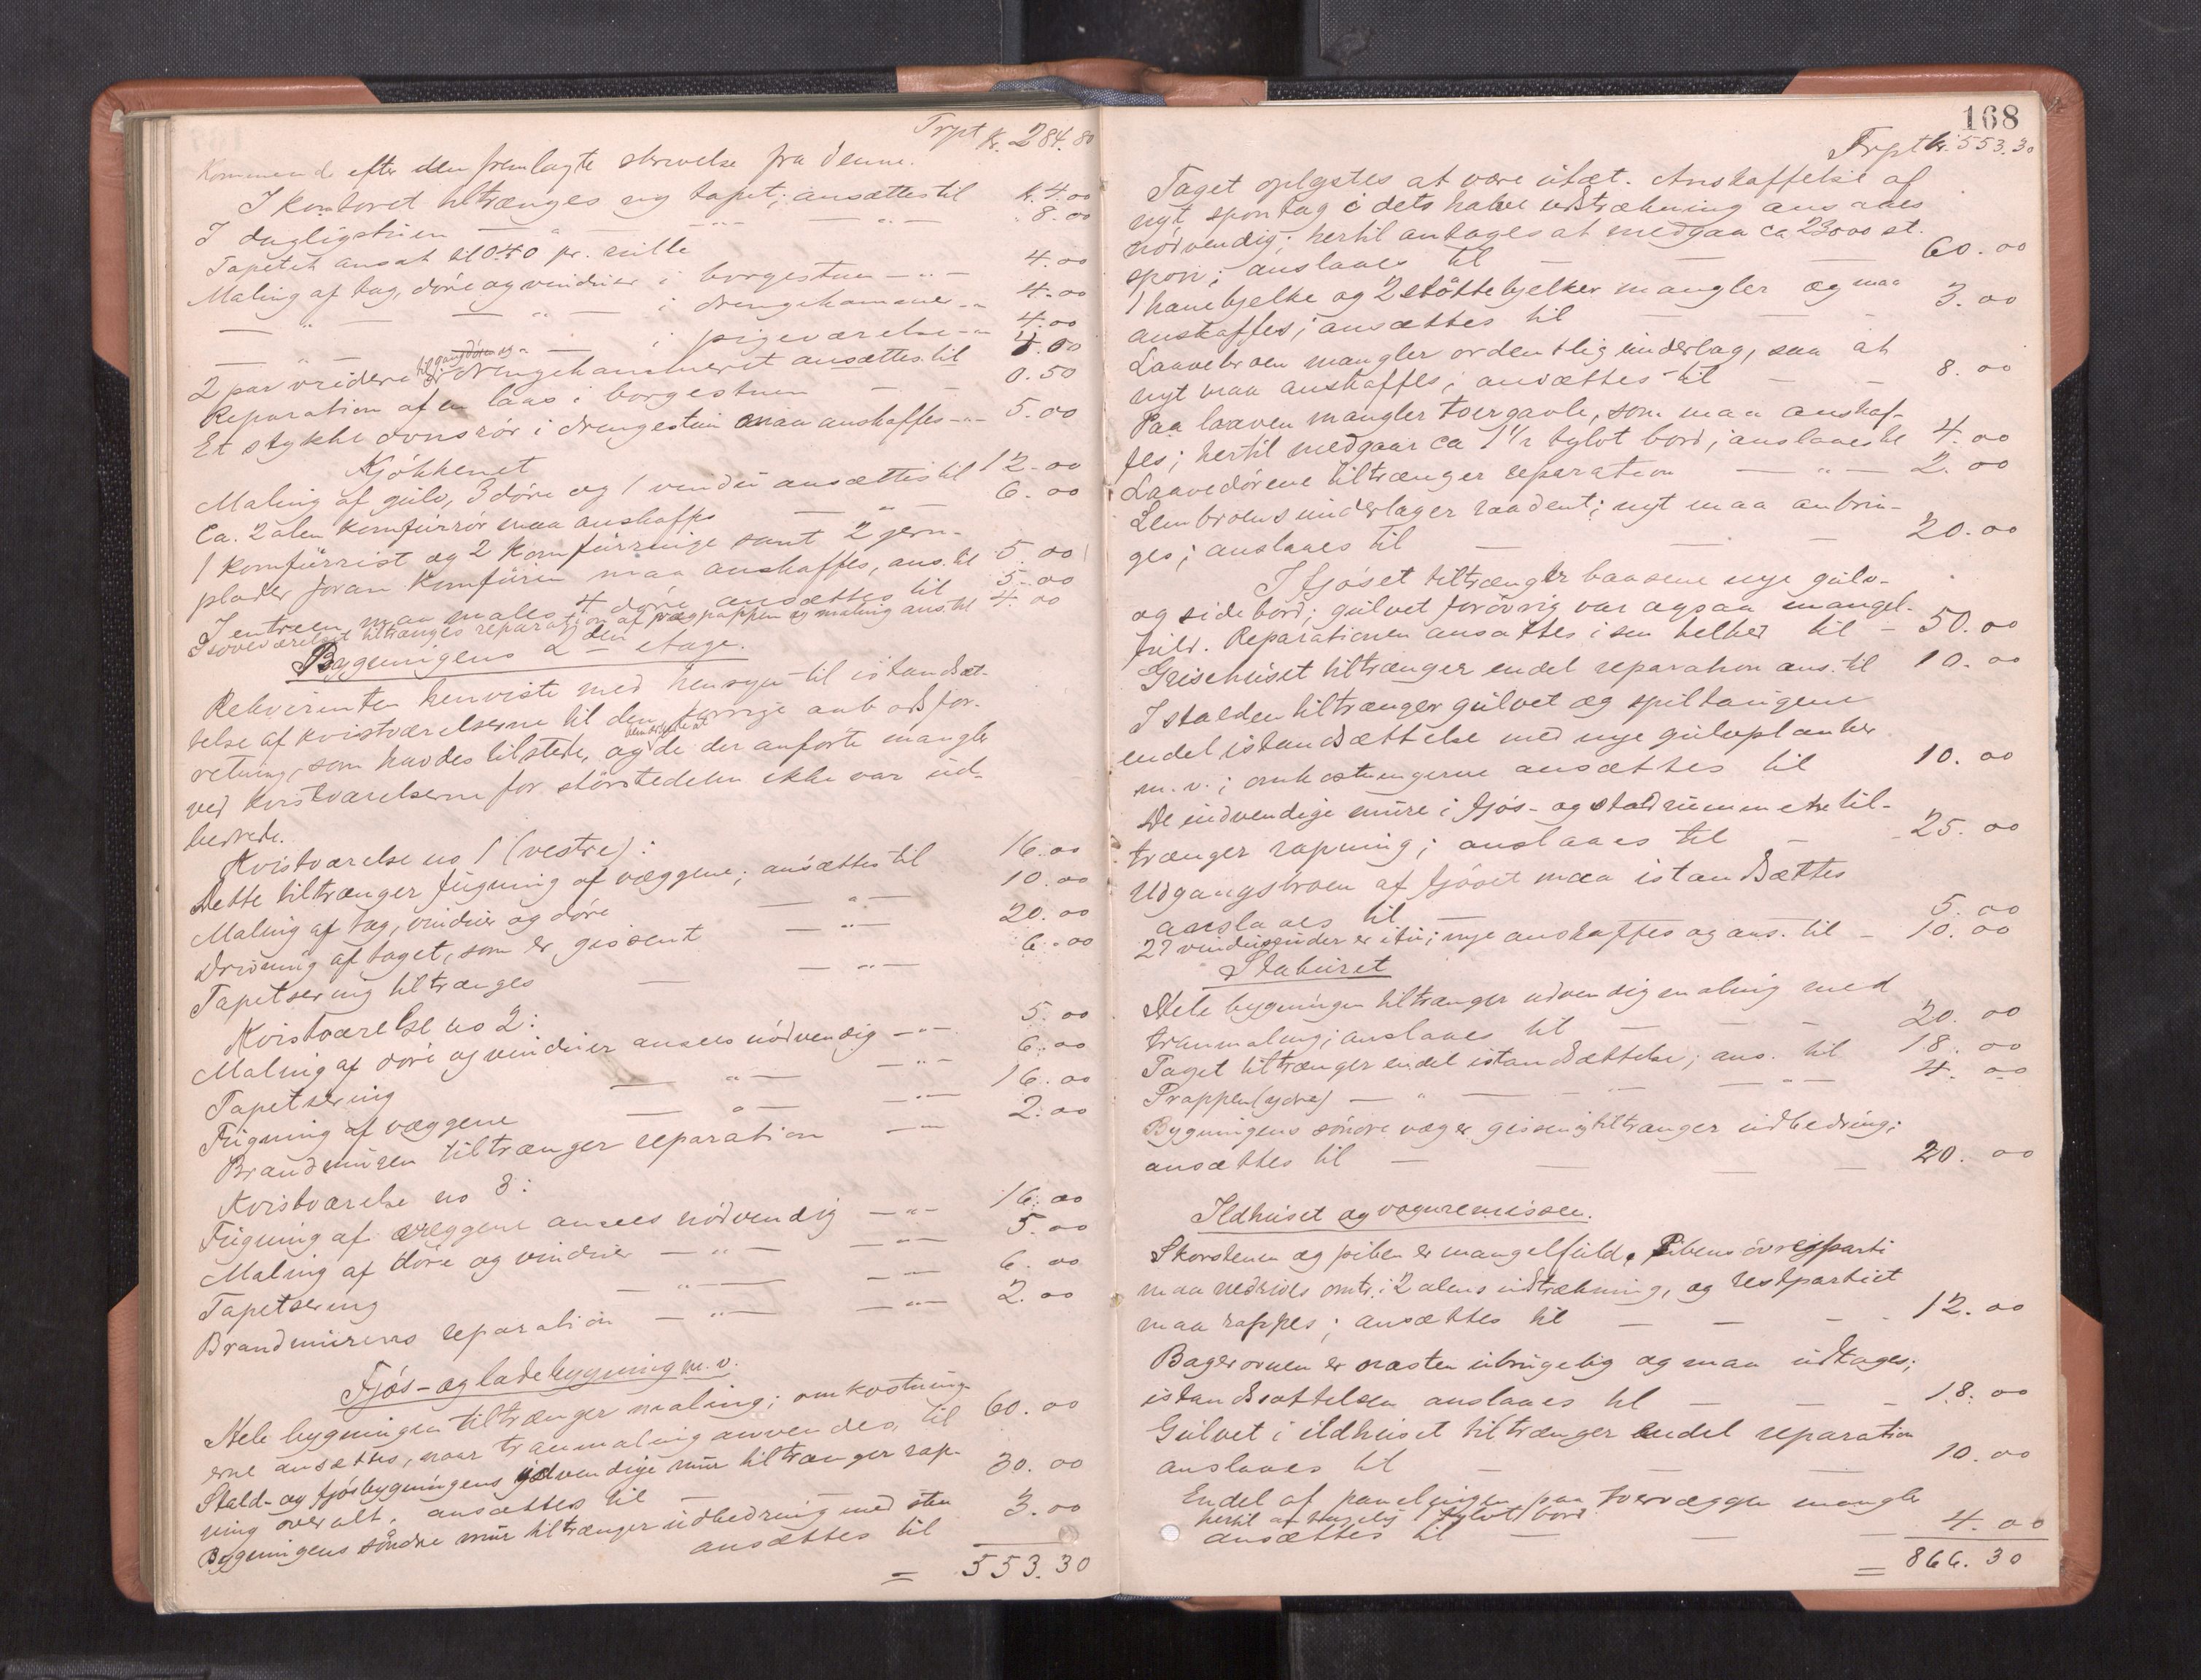 Trpt kr. 284.80
Kommende efter den fremlagte skrivelse fra denne.
I kontoret tiltrænges ny tapet; ansættes til kr. 4.00
I dagligstuen — " — — " — — " — " 8.00
Tapetet ansat til 0.40 pr. rulle
Maling af tag, døre og vinduer i borgestuen — " — 4.00
— " — — " — i drengekammer — " 4.00
— " — — " — i pigeværelse — " 4.00
2 par vridere til gangdøren og i drengekammeret ansættes til 4.00
Reparation af en laas i borgestuen — — 0.50
Et stykke ovnsrør i drengestuen maa anskaffes — " — 5.00
Kjøkkenet
Maling af gulv, 3 døre og 1 vindu ansættes til 12.00
Ca. 2 alen komfurrør maa anskaffes — " — 6.00
1 komfurrist og 2 komfurringe samt 2 jern-
plader foran komfuren maa anskaffes, ans. til 5.00
I entreen maa males 4 døre ansættes til 5.00
I soveværelset tiltrænges reparation af vægpappen og maling ans. til 4.00
Bygningens 2den etage.
Rekvirenten henviste med hensyn til istandsæt-
telse af kvistværelserne til den forrige aabodsfor-
retning, som havdes tilstede, og de der anførte mangler
ved kvistværelserne for størstedelen ikke var ud-
bedrede.
Kvistværelse no 1 (vestre):
Dette tiltrænger fugning af væggene; ansættes til 16.00
Maling af tag, vinduer og døre — " — 10.00
Drivning af taget, som er gissent — " — 20.00
Tapetsering tiltrænges — — " — 6.00
Kvistværelse no 2:
Maling af døre og vinduer ansees nødvendig — " — 5.00
Tapetsering — " — — " — 6.00
Fugning af væggene — " — — " — 16.00
Brandmuren tiltrænger reparation — " — 2.00
Kvistværelse no 3:
Fugning af væggene ansees nødvendig — " — 16.00
Maling af døre og vinduer — " — — " — 5.00
Tapetsering — " — — " — 6.00
Brandmurens reparation — " — — " — 2.00
Fjøs- og ladebygning m.v.
Hele bygningen tiltrænger maling; omkostning-
erne ansættes, naar tranmaling anvendes, til 60.00
Stald- og fjøsbygningens udvendige mur tiltrænger rap-
ning overalt, ansættes til — 30.00
Bygningens søndre mur tiltrænger udbedring med sten
ansættes til 3.00
= 553.30
168
Trpt kr. 553.30
Taget oplystes at være utæt. Anskaffelse af
nyt spontag i dets halve udstrækning ansaaes
nødvendig; hertil antages at medgaa ca 23000 st.
spon; anslaaes til — — — 60.00
1 hanebjelke og 2 støttebjelker mangler og maa
anskaffes; ansættes til — — — 3.00
Laavebroen mangler ordentlig underlag, saa at
nyt maa anskaffes; ansættes til — — 8.00
Paa laaven mangler tvergavle, som maa anskaf-
fes; hertil medgaar ca 1 1/2 tylvt bord; anslaaes til 4.00
Laavedørene tiltrænger reparation — " — 2.00
Lembroens underlag er raadent; nyt maa anbrin-
ges; anslaaes til — — — 20.00
I fjøset tiltrænger baasene nye gulv-
og sidebord; gulvet forøvrig var ogsaa mangel-
fuld. Reparationen ansættes i sin helhed til — 50.00
Grisehuset tiltrænger endel reparation ans. til 10.00
I stalden tiltrænger gulvet og spiltaugene
endel istandsættelse med nye gulvplanker
m. v.; omkostningerne ansættes til 10.00
De indvendige mure i fjøs- og staldrummene til-
trænger rapning; anslaaes til — 25.00
Udgangsbroen af fjøset maa istandsættes
anslaaes til — — 5.00
27 vindusruder er itu; nye anskaffes og ans. til — 10.00
Staburet
Hele bygningen tiltrænger udvendig maling med
tranmaling; anslaaes til — — — 20.00
Taget tiltrænger endel istandsættelse; ans. til 18.00
Trappen (ydre) — " — — " — 4.00
Bygningens søndre væg er gissen og tiltrænger udbedring;
ansættes til — — — — 20.00
Ildhuset og vognremissen.
Skorstenen og piben er mangelfuld. Pibens øvre parti
maa nedrives omtr. i 2 alens udstrækning, og restpartiet
maa rappes; ansættes til — — — 12.00
Bagerovnen er næsten ubrugelig og maa udtages;
istandsættelsen anslaaes til — — — 18.00
Gulvet i ildhuset tiltrænger endel reparation
anslaaes til — — — 10.00
Endel af panelingen paa tvervæggen mangler
hertil 1 tylvt bord
ansættes til — — — 4.00
= 866.30